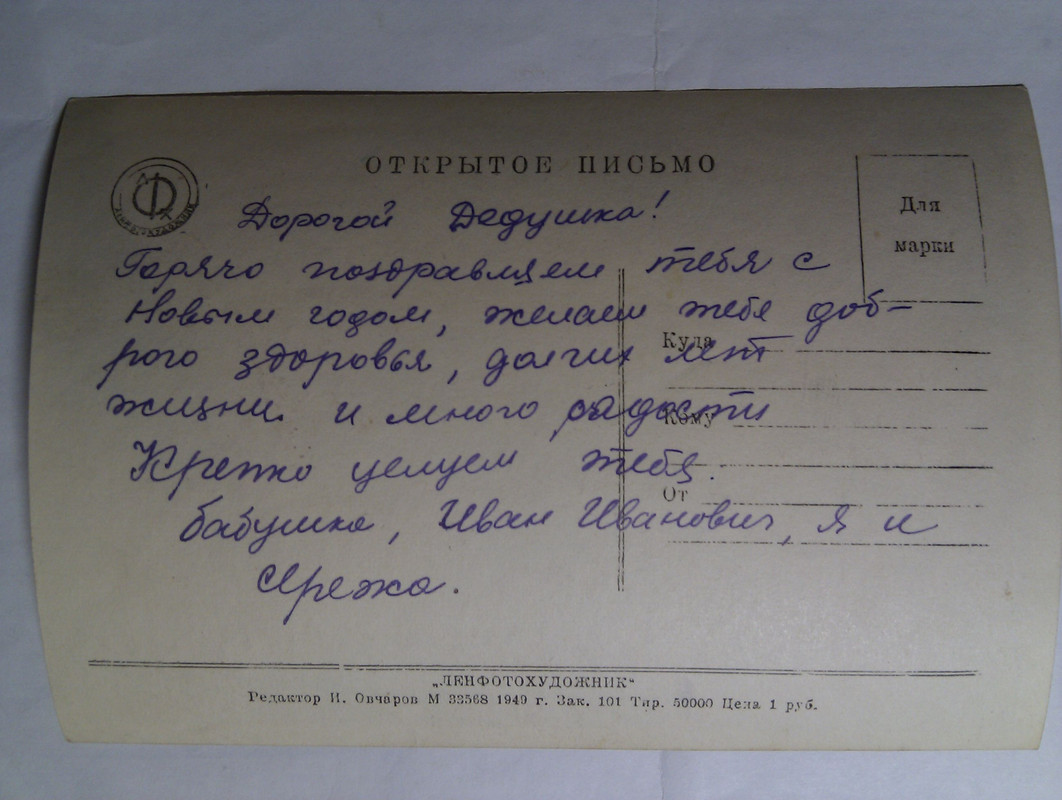 ОТКРЫТОЕ ПИСЬМО
Для
марки
Дорогой Дедушка!
Горячо поздравляем тебя с
Новым годом, желаем тебе доб-
рого здоровья, долгих лет
жизни и много радости
Крепко целуем тебя.
бабушка, Иван Иванович, я и
Сережа.
Куда
Кому
От
„ЛЕНФОТОХУДОЖНИК“
Редактор И. Овчаров М 33568 1949 г. Зак. 101 Тир. 50000 Цена 1 руб.